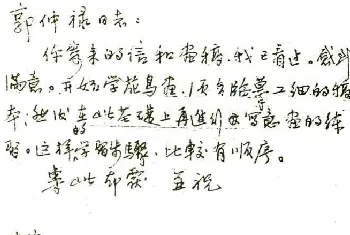 郭仲禄同志：
你寄来的信和画稿，我已看过。感到
满意。开始学花鸟画，须多临摹工细的稿
本；然后在此基础上再进行写意画的练
习。这样学习步骤，比较有顺序。
专此即覆 并祝